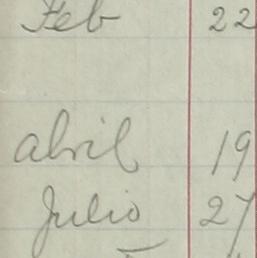 Feb 22
abril 19
Julio 27